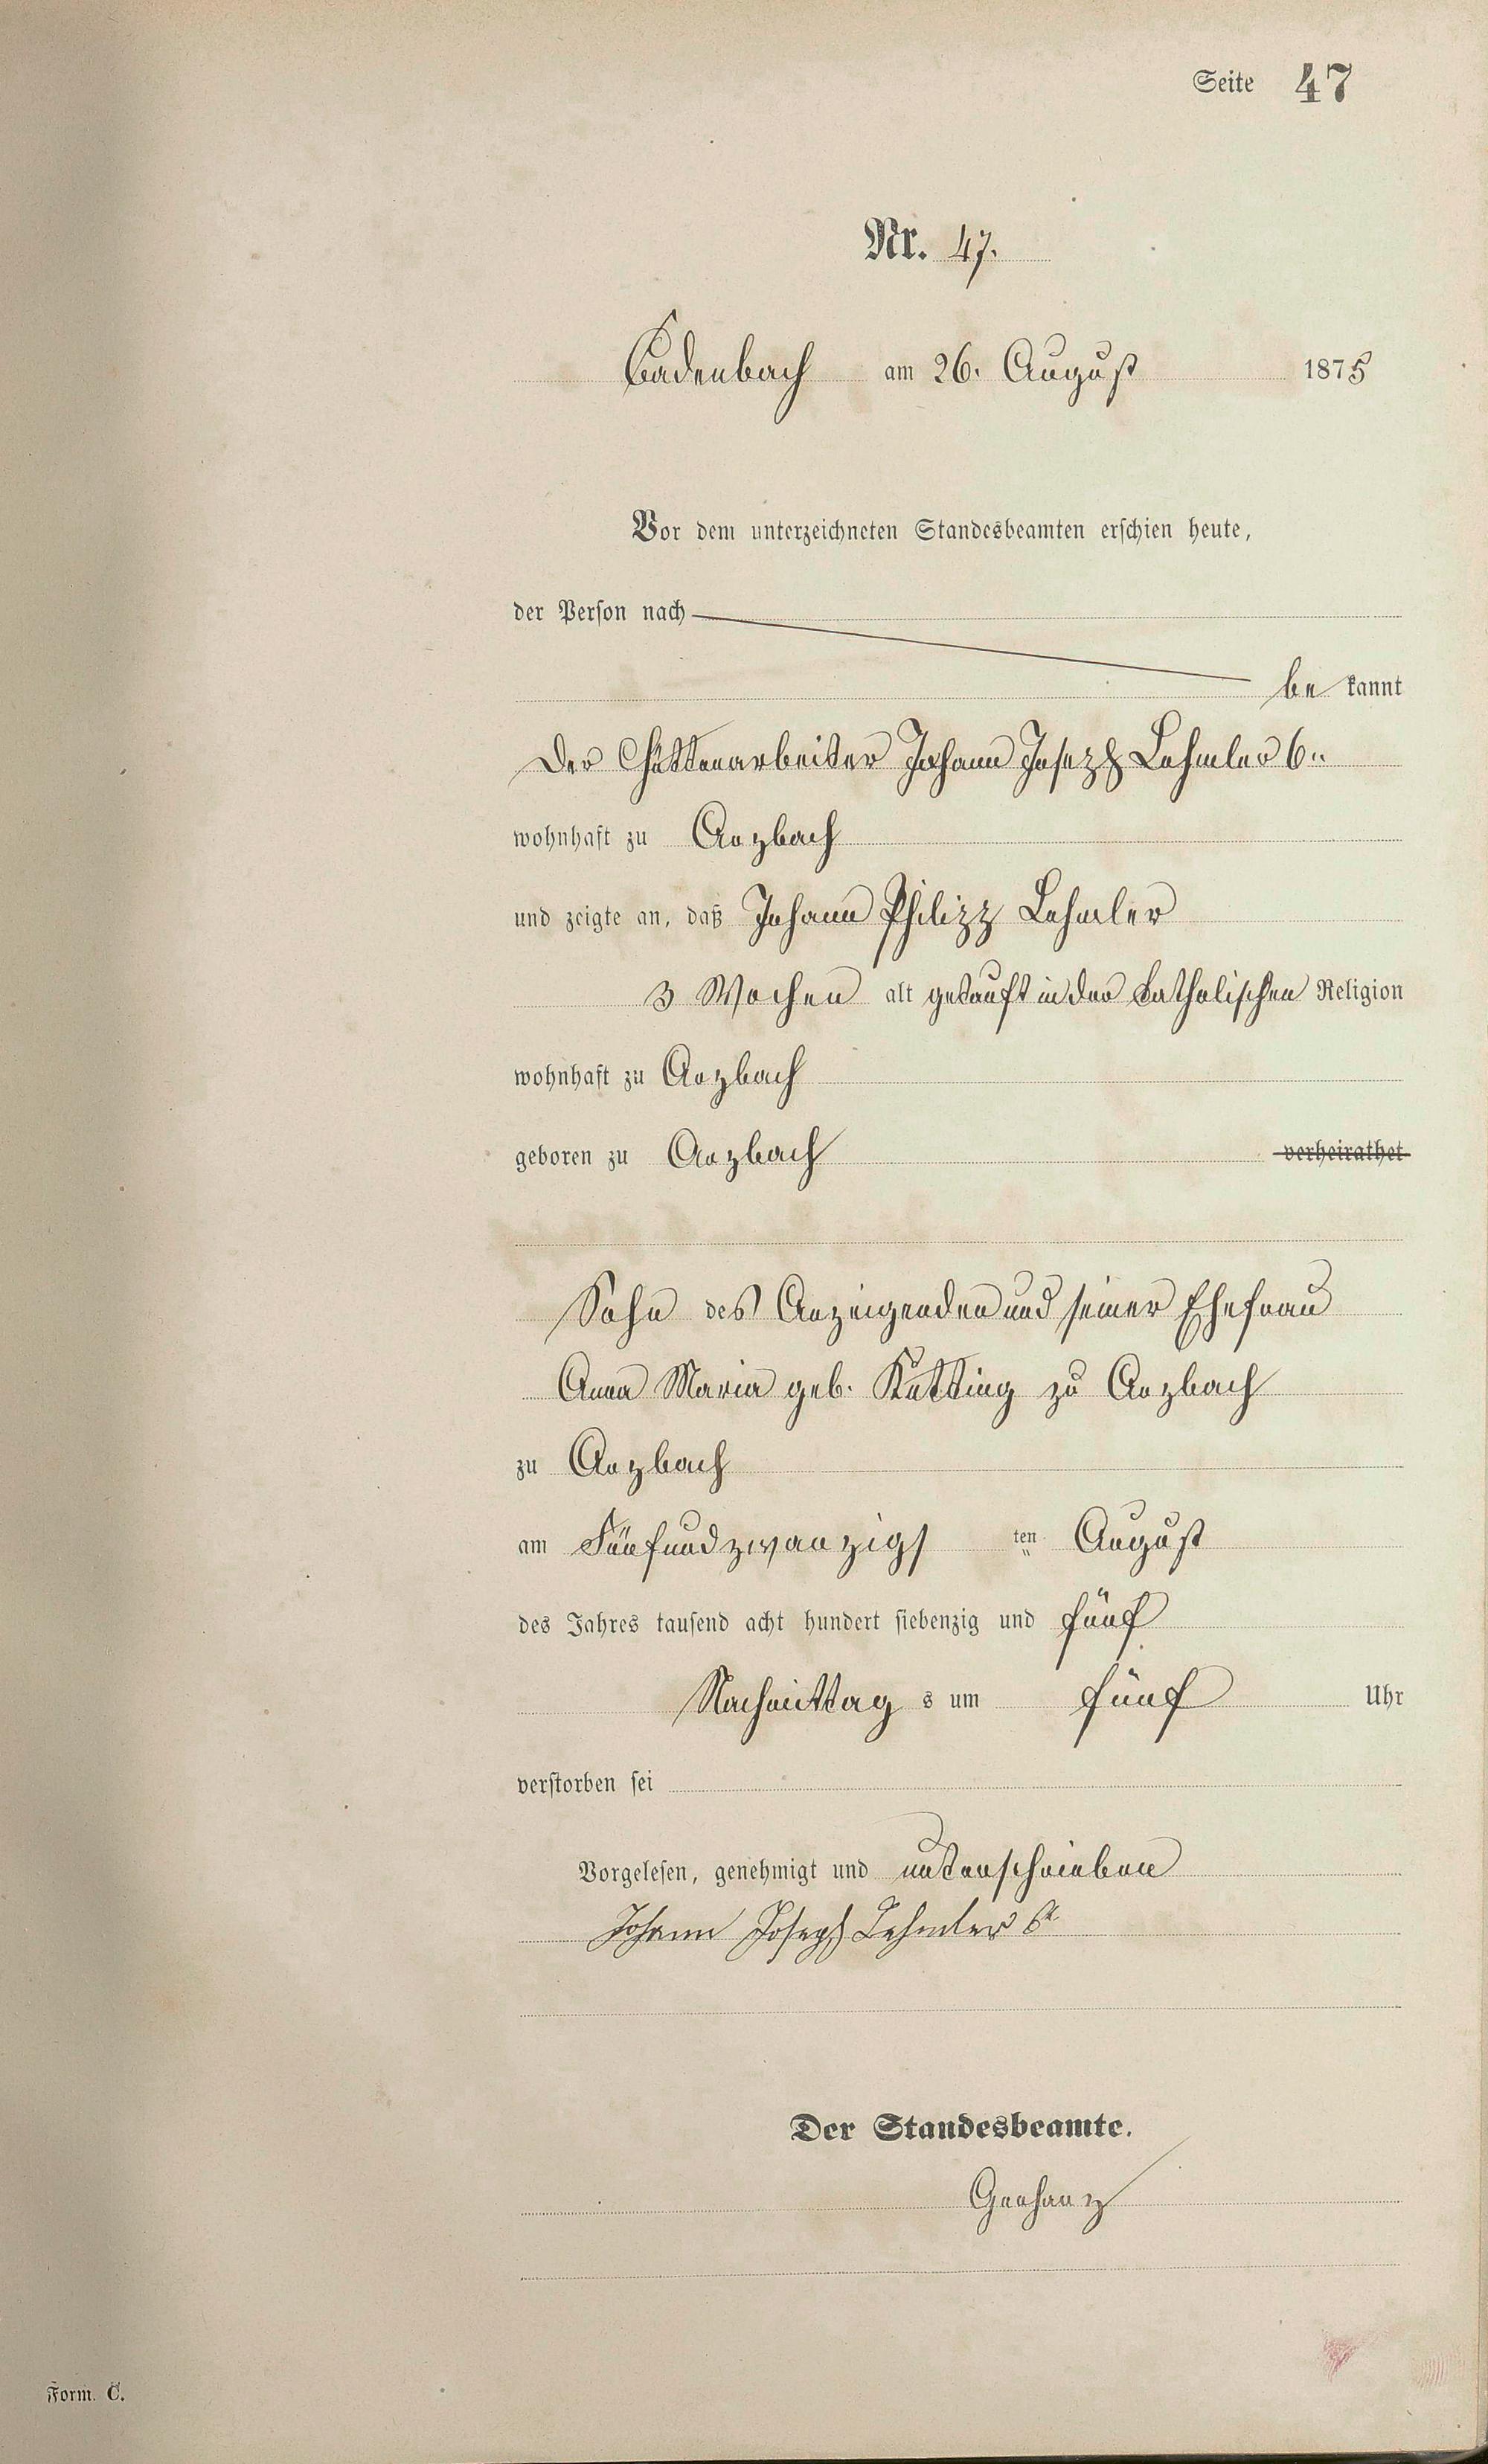 Seite 47
Nr. 47.
Cadenbach am 26. August 1875
Vor dem unterzeichneten Standesbeamten erschien heute,
der Person nach
be kannt
Der Hüttenarbeiter Johann Joseph Lehmler 6r
wohnhaft zu Arzbach
und zeigte an, daß Johann Philipp Lehmler
3 Wochen alt getauft in der katholischen Religion
wohnhaft zu Arzbach
geboren zu Arzbach verheirathet
Sohn des Anzeigenden und seiner Ehefrau
Anna Maria geb. Ketting zu Arzbach
zu Arzbach
am Fünfundzwanzigs ten August
des Jahres tausend acht hundert siebenzig und fünf
Nachmittag s um fünf Uhr
verstorben sei
Vorgelesen, genehmigt und unterschrieben
Johann Joseph Lehmler 6r
Der Standesbeamte.
Gerharz
Form. C.